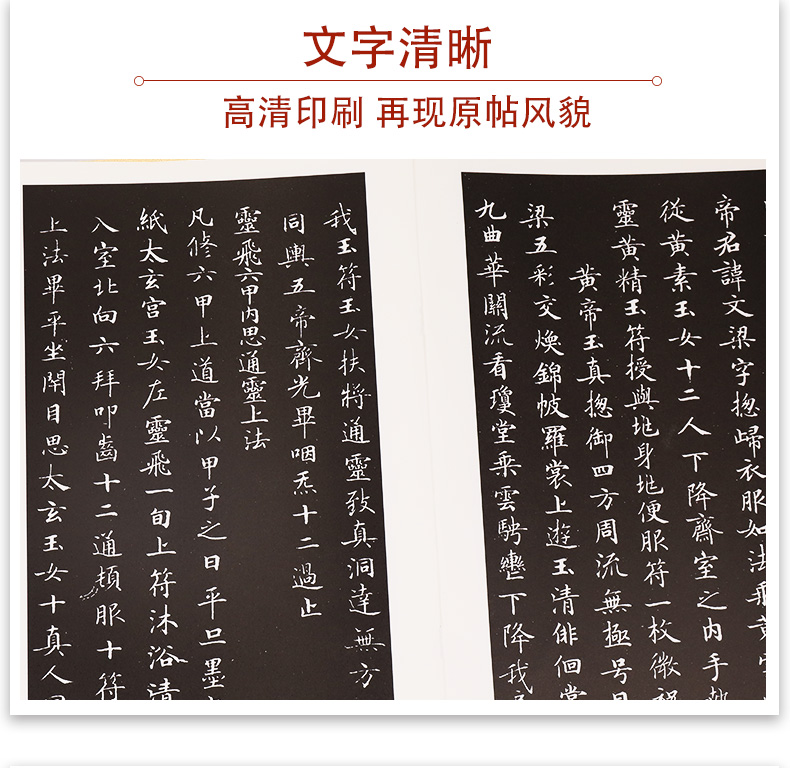 文字清晰
高清印刷 再现原帖风貌
帝君諱文梁字揔歸衣服如法飛黃
從黃素玉女十二人下降齋室之内手執
靈黃精玉符授與地身地便服符一枚微祝
黃帝玉真揔御四方周流無極号曰
梁五彩交煥錦帔羅裳上遊玉清俳佪常
九曲華關流看瓊堂乘雲騁轡下降我
我玉符玉女扶將通靈致真洞達無方
同輿五帝齊光畢咽炁十二過止
靈飛六甲内思通靈上法
凡修六甲上道當以甲子之日平旦墨
紙太玄宫玉女左靈飛一旬上符沐浴清
入室北向六拜叩齒十二通頓服十符
上法畢平坐閉目思太玄玉女十真人